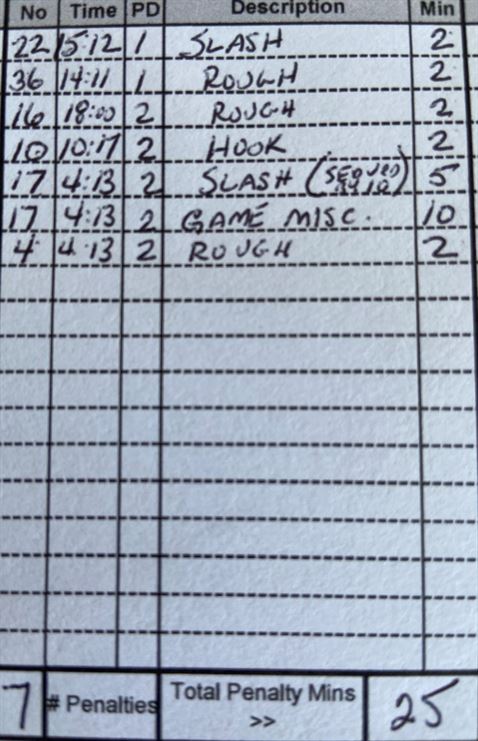 No Time PD Description Min
22 15:12 1 SLASH 2
36 14:11 1 ROUGH 2
16 18:00 2 ROUGH 2
10 10:17 2 HOOK 2
17 4:13 2 SLASH (SERVED BY 10) 5
17 4:13 2 GAME MISC. 10
4 4:13 2 ROUGH 2
7 # Penalties Total Penalty Mins >> 25